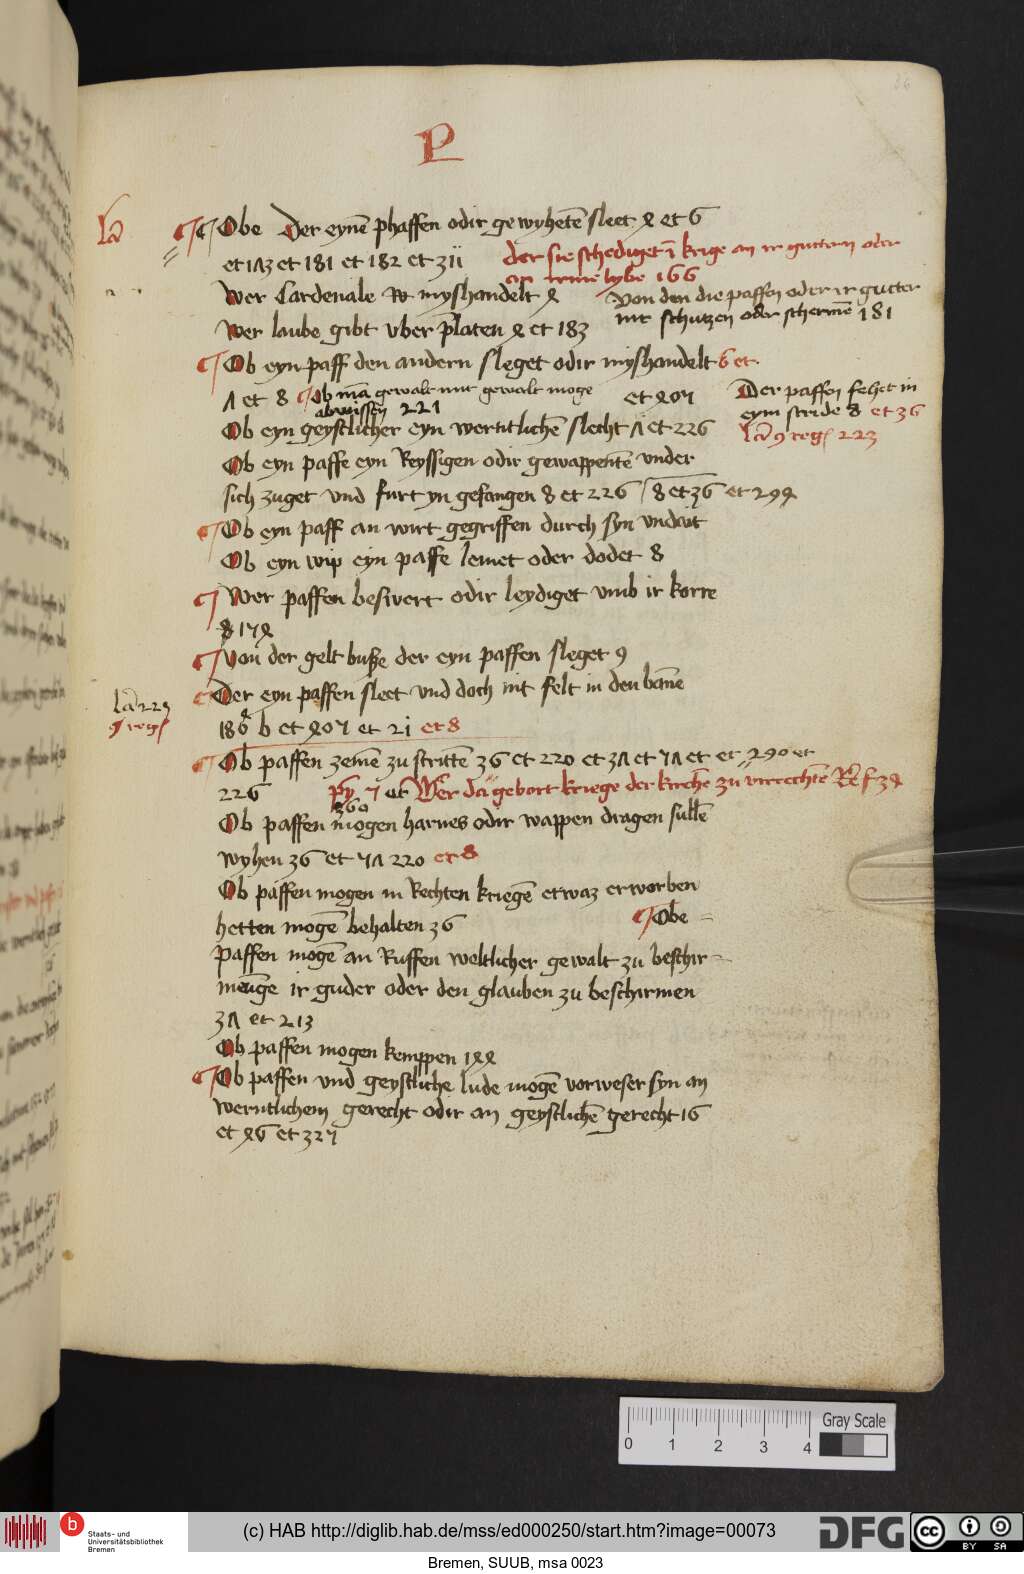 P
Obe Der eynē phaffen odir gewyhetē sleet 4 et 6
et 173 et 181 et 182 et 311
der sie schediget ī krige an ir guttern oder
an irme lybe 166
Wer Cardenale myshandelt 4
Von den die paffen oder ir gutter
nit schutzen oder schermē 181
Wer laube gibt vber p̄laten 4 et 183
Ob eyn paff den andern sleget odir myshandelt 6 et
7 et 8
Ob mā gewalt mit gewalt moge
abwissen 221
et 407
Der paffen fehet in
eym stride 8 et 36
223
Ob eyn geystlicher eyn werntlichē slecht 7 et 226
Ob eyn paffe eyn Reyssigen odir gewappentē vnder
sich zuget vnd furt yn gefangen 8 et 226 8 et 36 et 294
Ob eyn paff an wirt gegriffen durch syn vndait
Ob eyn wip eyn paffe lemet oder dodet 8
Wer paffen beswert odir leydiget vmb ir korre
8 174
Von der gelt busze der eyn paffen sleget 9
Der eyn paffen sleet vnd doch nit felt in den bāne
186 b et 407 et 21 et 8
Ob paffen zemē zu strittē 36 et 220 et 37 et 77 et et 290 et
226
Wer da gebort kriege der kirchē zu virrechtē
Ob paffen mogen harnes odir wappen dragen sullē
260
wyhen 36 et 77 220 et 8
Ob paffen mogen in Rechten kriegē etwaz erworben
hetten mogē behalten 36
Obe
paffen mogē an Ruffen weltlicher gewalt zu beschir
menge ir guder oder den glauben zu beschirmen
37 et 213
Ob paffen mogen kemppen 144
Ob paffen vnd geystliche lude mogē vorweser syn an
werntlichem gerecht odir an geystlichē gerecht 16
et 46 et 327
0 1 2 3 4
Gray Scale
b
Staats- und
Universitätsbibliothek
Bremen
(c) HAB http://diglib.hab.de/mss/ed000250/start.htm?image=00073
DFG
cc
BY SA
Bremen, SUUB, msa 0023